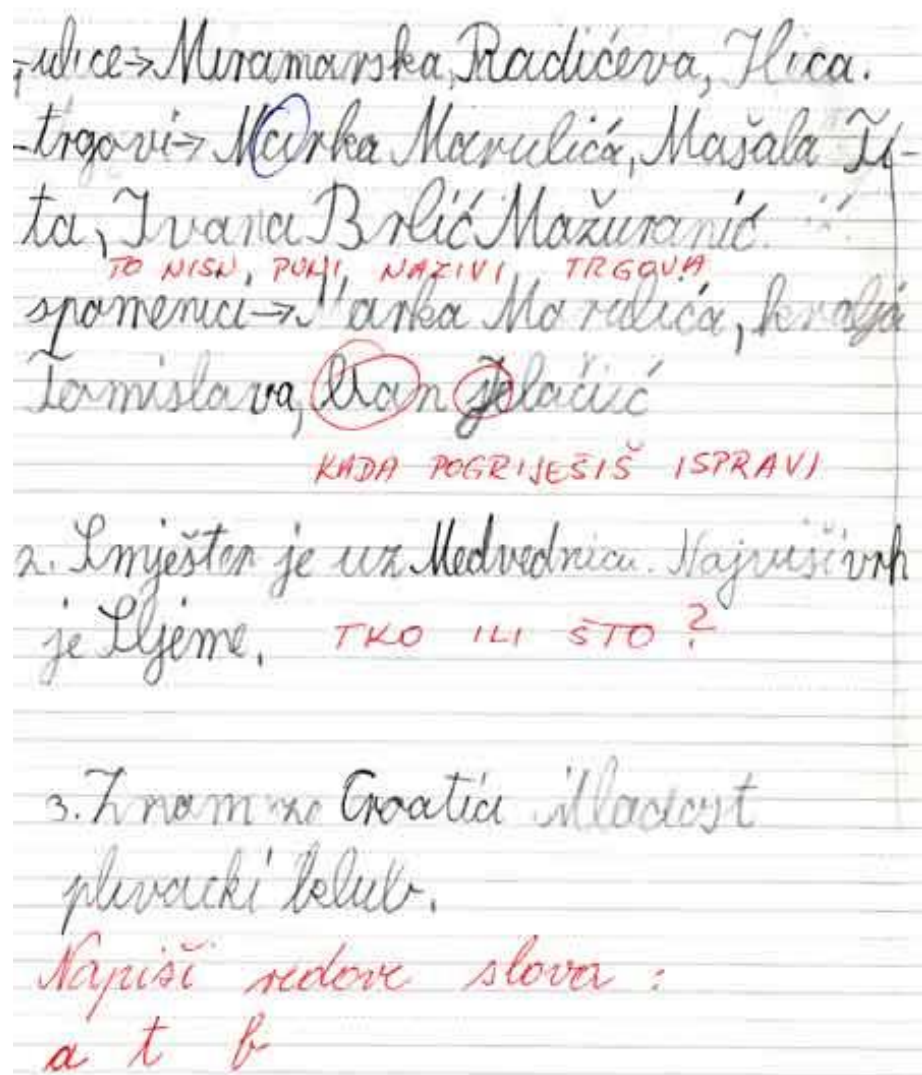 -ulice→Miramarska, Radićeva, Ilica.
-trgovi→ Marka Marulića, Mašala Ti-
ta, Ivana Brlić Mažuranić.
TO NISU PUNI NAZIVI TRGOVA
spomenici→Marka Marulića, kralja
Tomislava, ban Jelačić
KADA POGRIJEŠIŠ ISPRAVI
2. Smješten je uz Medvednicu. Najviši vrh
je Sljeme. TKO ILI ŠTO?
3. Znam za Croatia Mladost
plivački klub.
Napiši redove slova:
a t b